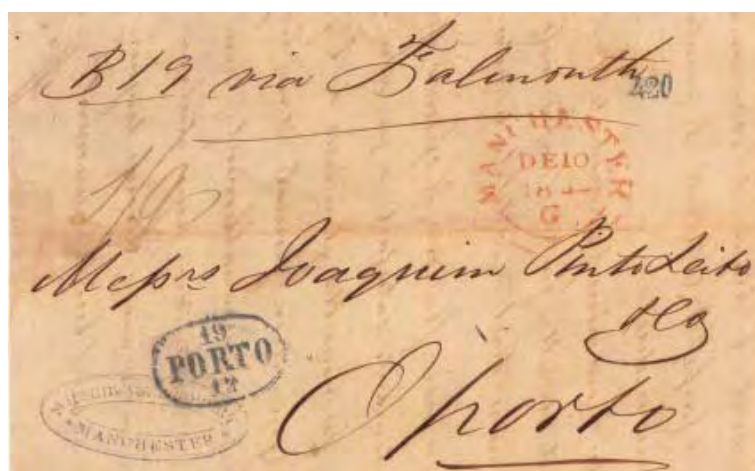 B19 via Falmouth
420
MANCHESTER
DE10
184
G
1/9
Messrs Joaquim Pinto Leite
& Co
19
PORTO
12
MANCHESTER
Oporto